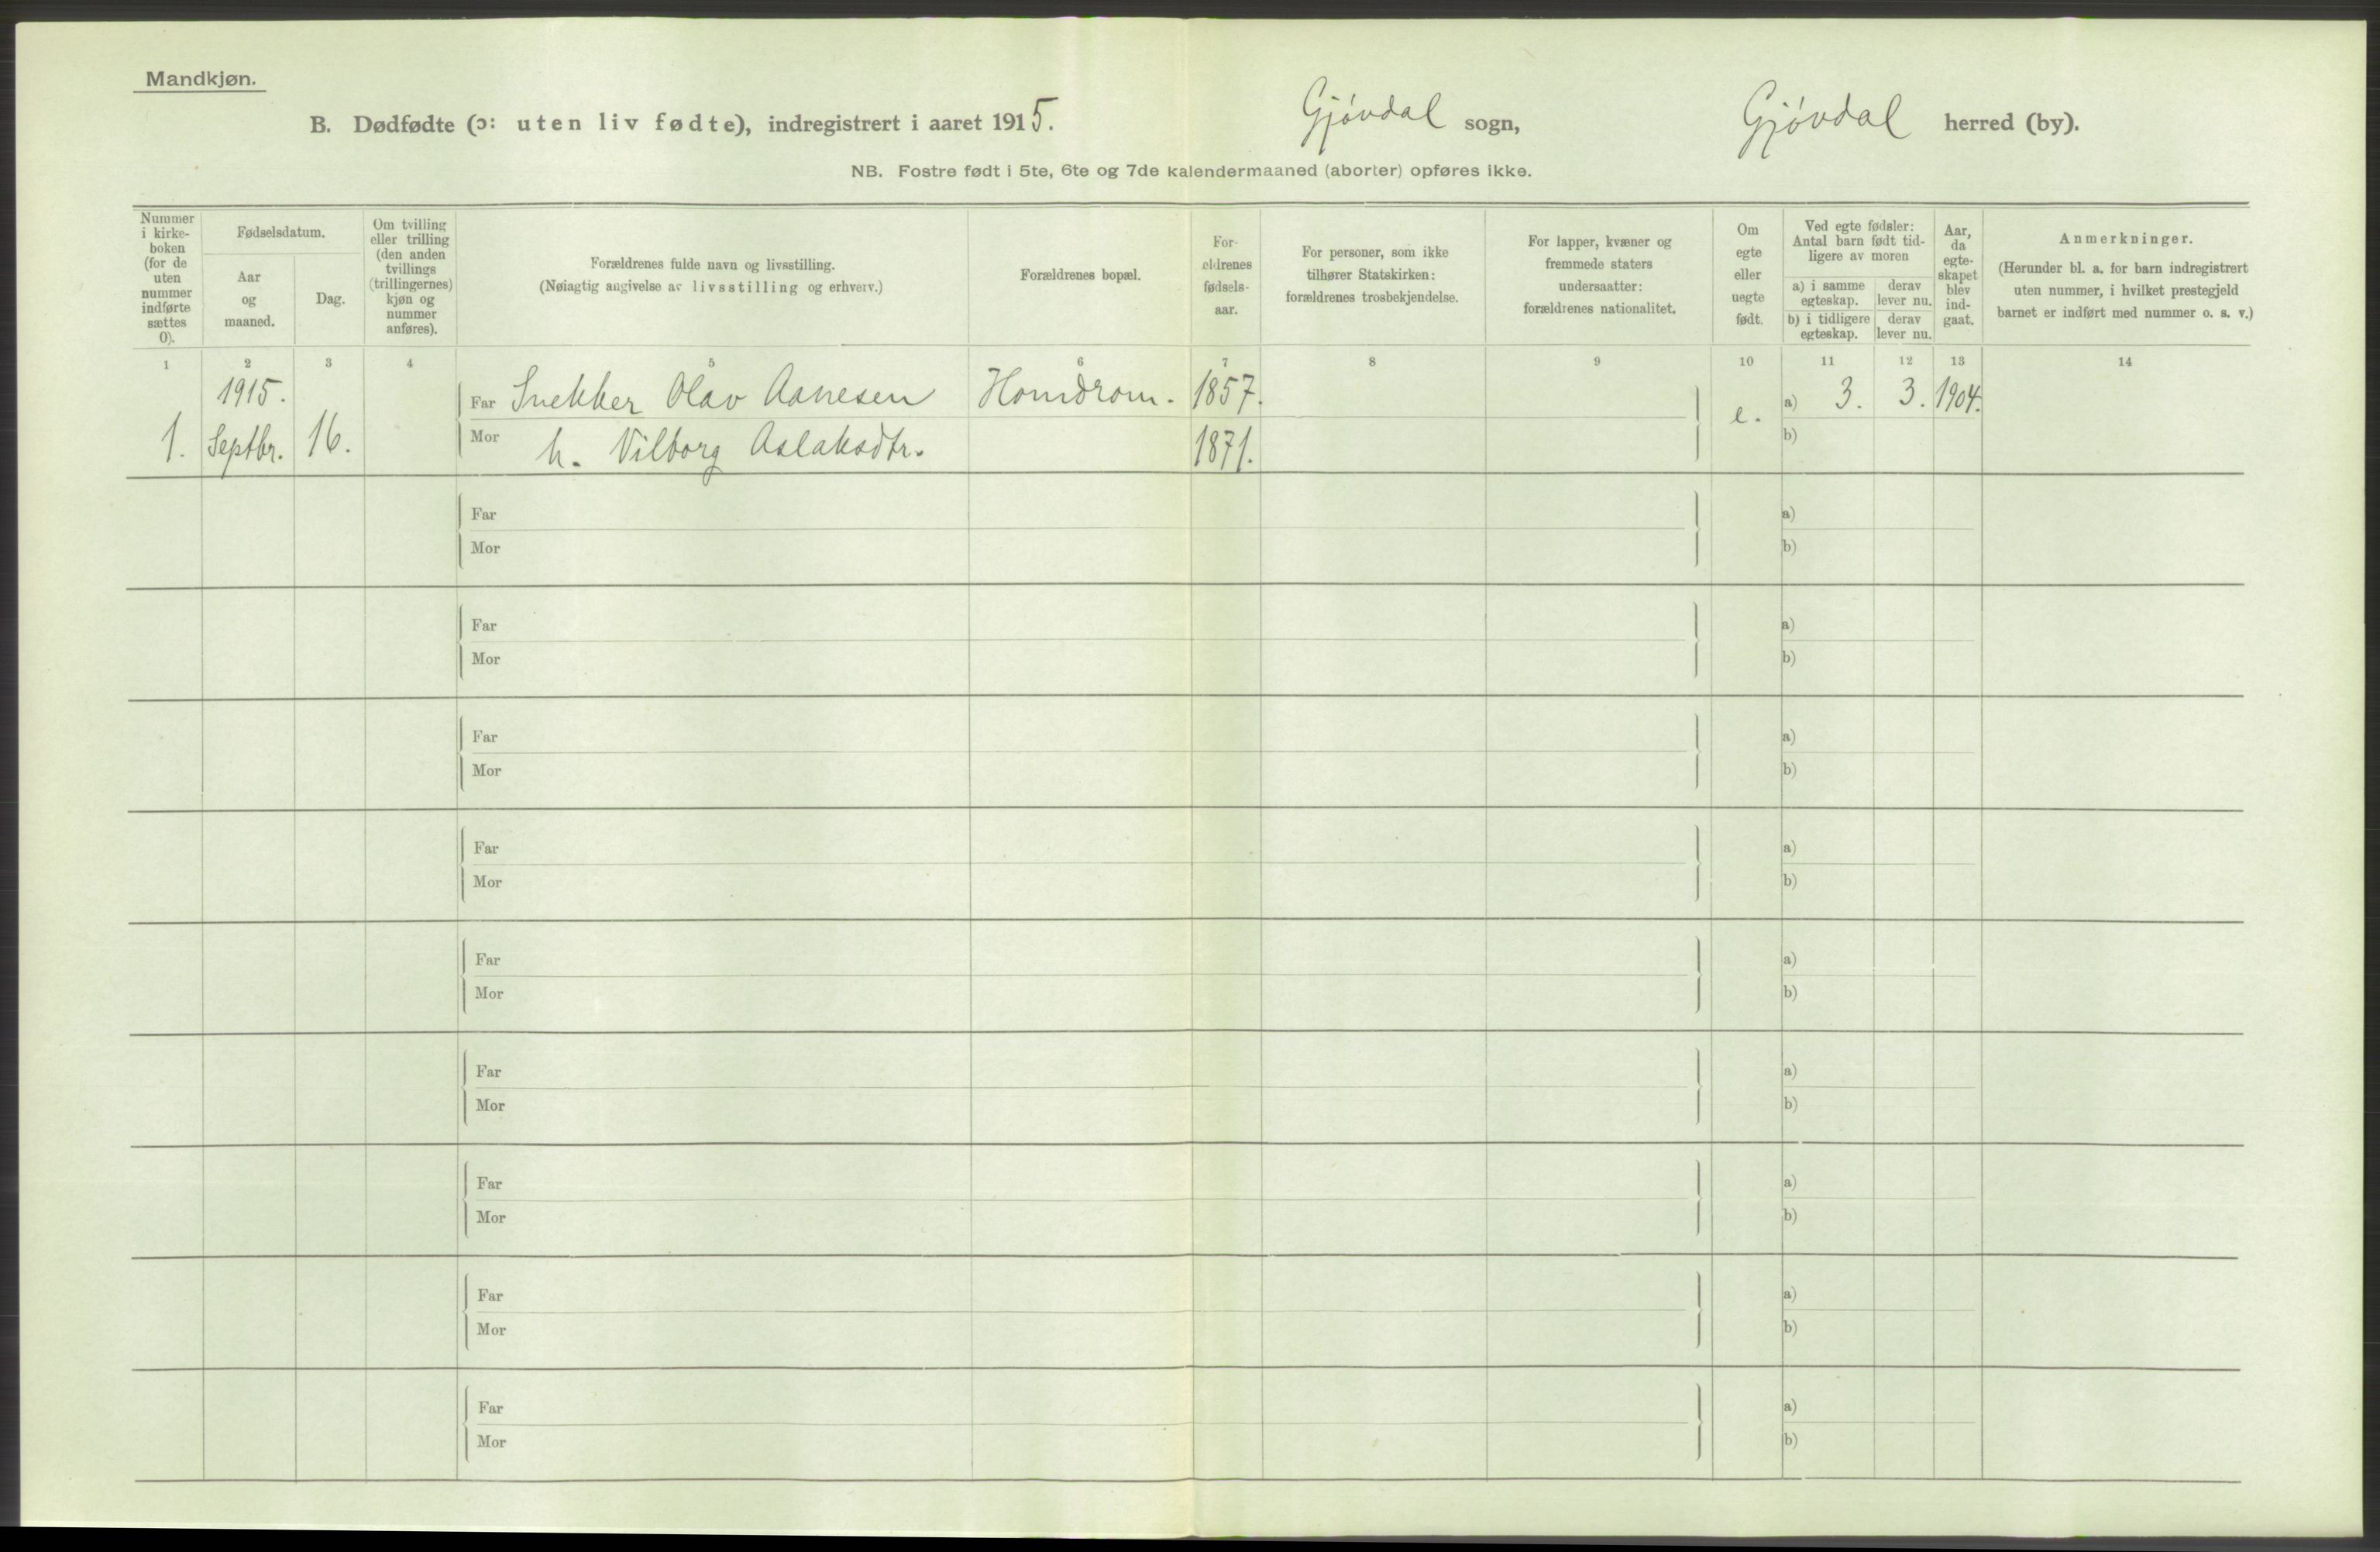 Mandkjøn.
B. Dødfødte (ɔ: uten liv fødte), indregistrert i aaret 1915. Gjövdal sogn, Gjövdal herred (by).
NB. Fostre født i 5te, 6te og 7de kalendermaaned (aborter) opføres ikke.
Nummer i kirke- boken (for de uten nummer indførte sættes 0).
Fødselsdatum.
Aar og maaned.
Dag.
Om tvilling eller trilling (den anden tvillings (trillingernes) kjøn og nummer anføres).
Forældrenes fulde navn og livsstilling.
(Nøiagtig angivelse av livsstilling og erhverv.)
Forældrenes bopæl.
For- ældrenes fødsels- aar.
For personer, som ikke tilhører Statskirken: forældrenes trosbekjendelse.
For lapper, kvæner og fremmede staters undersaatter: forældrenes nationalitet.
Om egte eller uegte født.
Ved egte fødsler: Antal barn født tid- ligere av moren
a) i samme egteskap.
derav lever nu.
b) i tidligere egteskap.
derav lever nu.
Aar, da egte- skapet blev ind- gaat.
Anmerkninger.
(Herunder bl. a. for barn indregistrert uten nummer, i hvilket prestegjeld barnet er indført med nummer o. s. v.)
1 2 3 4 5 6 7 8 9 10 11 12 13 14
1915. Far Snekker Olav Aanesen Homdrom. 1857. e. a) 3. 3. 1904.
1. Septbr. 16. Mor h. Vilborg Aslaksdtr. 1871. b)
Far a)
Mor b)
Far a)
Mor b)
Far a)
Mor b)
Far a)
Mor b)
Far a)
Mor b)
Far a)
Mor b)
Far a)
Mor b)
Far a)
Mor b)
Far a)
Mor b)